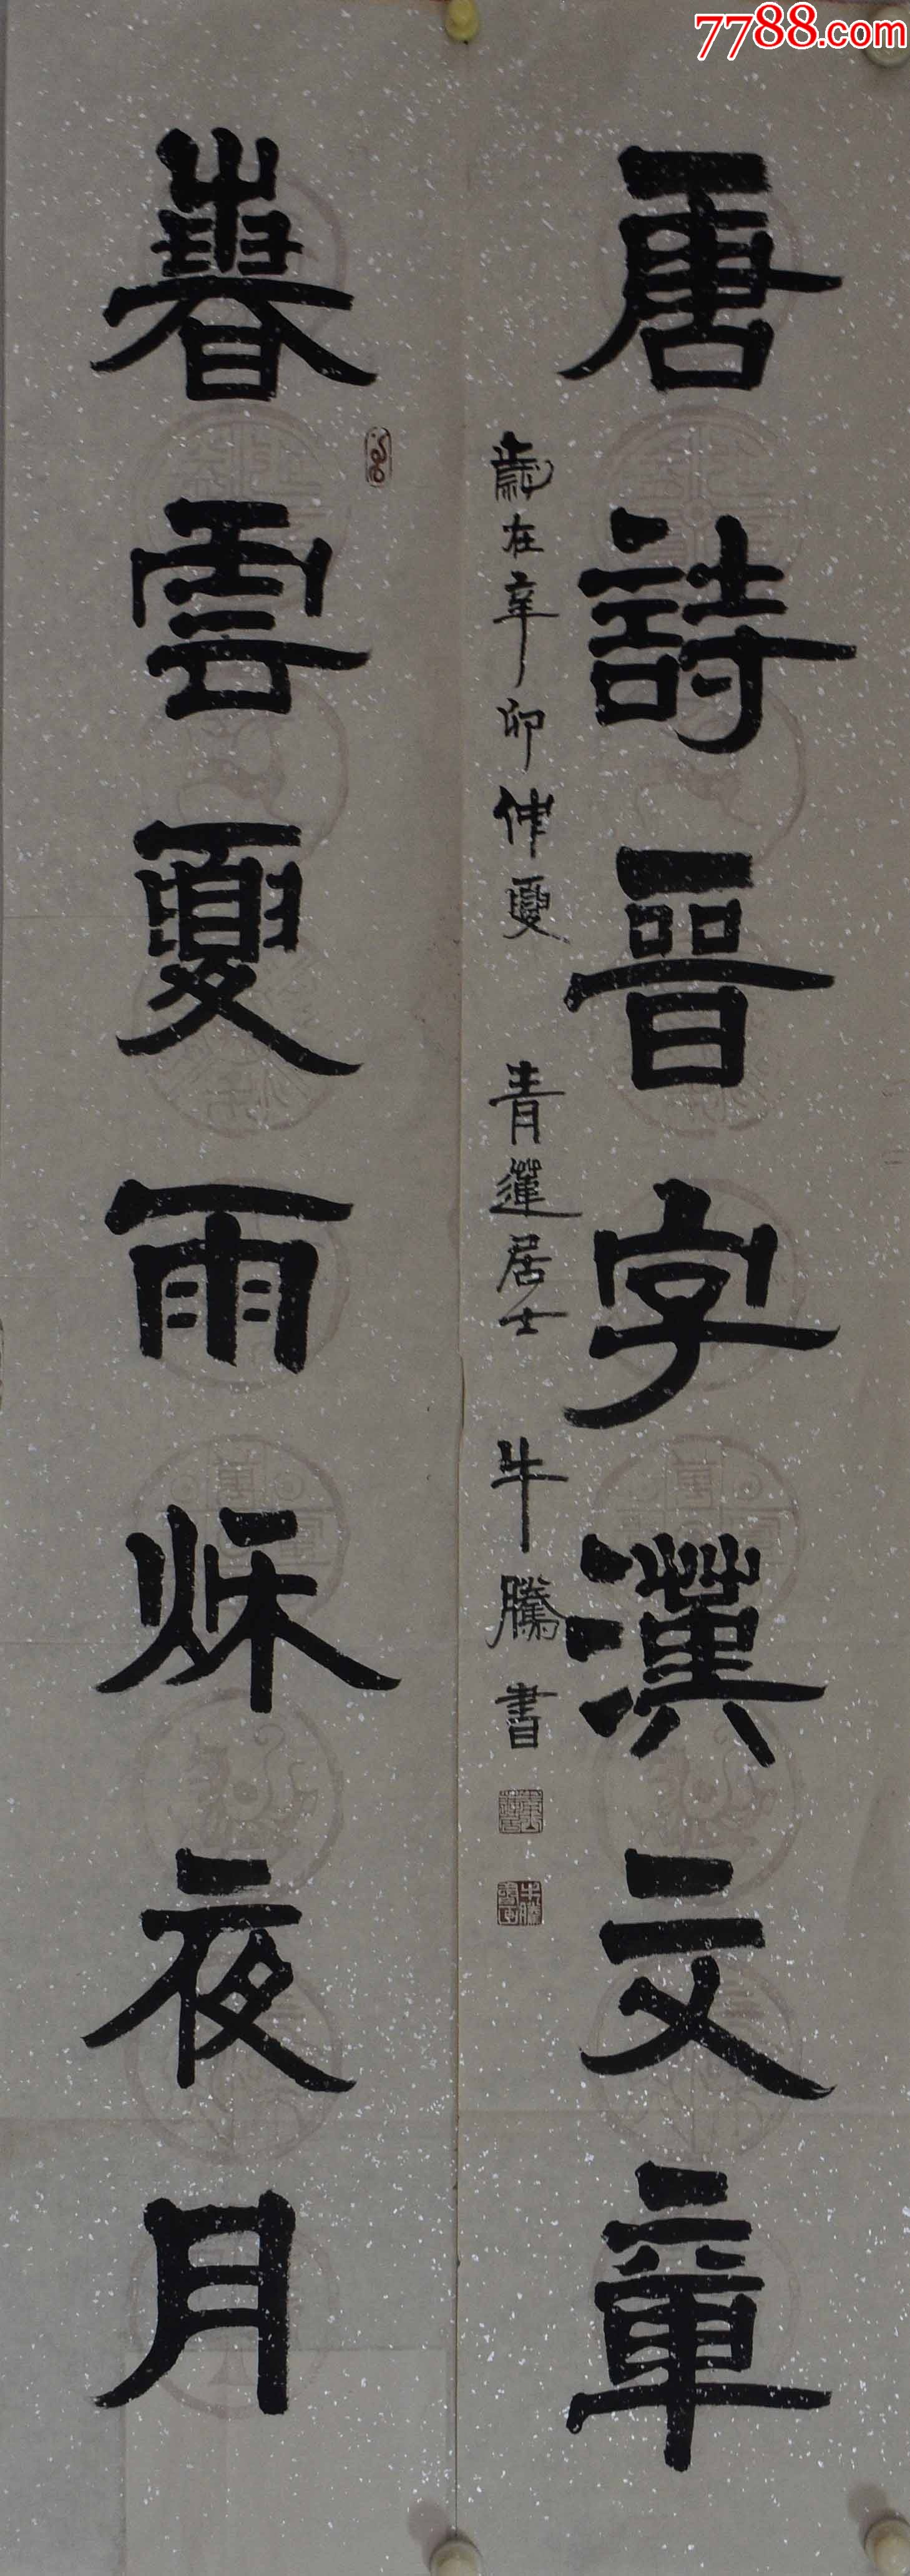 7788.com
唐詩晉字漢文章
春雲夏雨秌夜月
歲在辛卯仲夏 青蓮居士 牛騰書